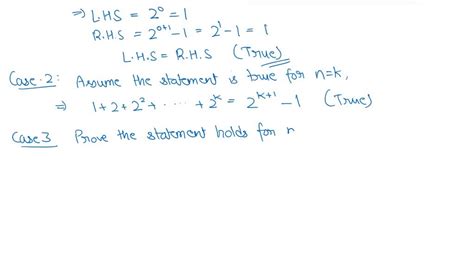 ⇒ L.H.S = 2⁰ = 1
R.H.S = 2⁰⁺¹-1 = 2¹-1 = 1
L.H.S = R.H.S (True)
Case-2: Assume the statement is true for n=k,
⇒ 1+2+2²+ ..... +2ᵏ = 2ᵏ⁺¹ -1 (True)
Case 3 Prove the statement holds for n